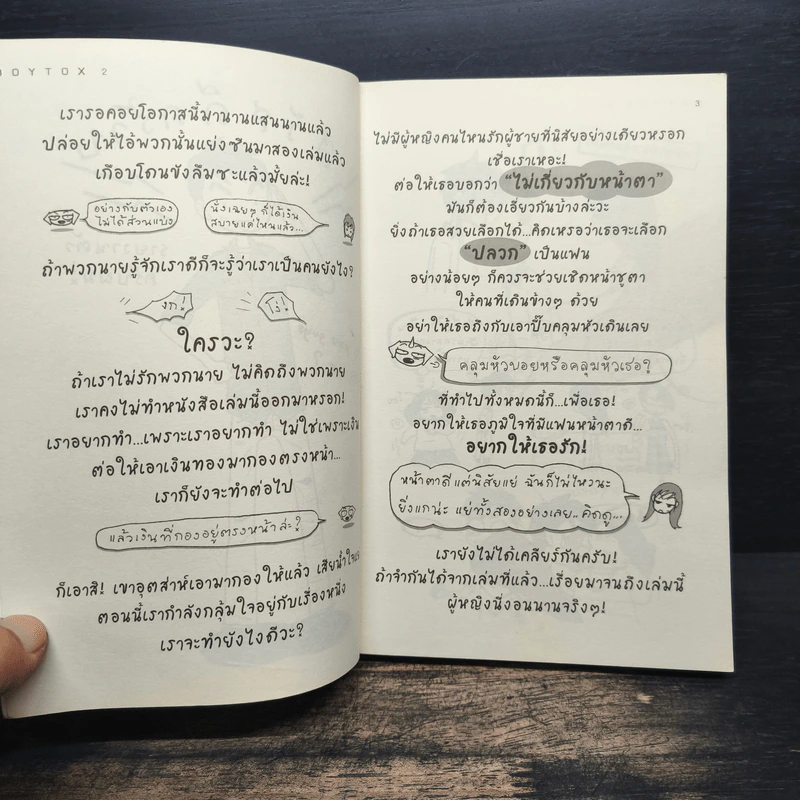 BOYTOX 2
เรารอคอยโอกาสนี้มานานแสนนานแล้ว
ปล่อยให้ไอ้พวกนั้นแย่งซีนมาสองเล่มแล้ว
เกือบโดนขังลืมซะแล้วมั้ยล่ะ!
อย่างกับตัวเอง
ไม่ได้ส่วนแบ่ง
นั่งเฉยๆ ก็ได้เงิน
สบายแค่ไหนแล้ว...
ถ้าพวกนายรู้จักเราดีก็จะรู้ว่าเราเป็นคนยังไง?
งก!
โง่!
ใครวะ?
ถ้าเราไม่รักพวกนาย ไม่คิดถึงพวกนาย
เราคงไม่ทำหนังสือเล่มนี้ออกมาหรอก!
เราอยากทำ...เพราะเราอยากทำ ไม่ใช่เพราะเงิน
ต่อให้เอาเงินทองมากองตรงหน้า...
เราก็ยังจะทำต่อไป
แล้วเงินที่กองอยู่ตรงหน้าล่ะ?
ก็เอาสิ! เขาอุตส่าห์เอามากองให้แล้ว เสียน้ำใจเขา
ตอนนี้เรากำลังกลุ้มใจอยู่กับเรื่องหนึ่ง
เราจะทำยังไงดีวะ?
3
ไม่มีผู้หญิงคนไหนรักผู้ชายที่นิสัยอย่างเดียวหรอก
เชื่อเราเหอะ!
ต่อให้เธอบอกว่า "ไม่เกี่ยวกับหน้าตา"
มันก็ต้องเอี่ยวกันบ้างล่ะวะ
ยิ่งถ้าเธอสวยเลือกได้...คิดเหรอว่าเธอจะเลือก
"ปลวก" เป็นแฟน
อย่างน้อยๆ ก็ควรจะช่วยเชิดหน้าชูตา
ให้คนที่เดินข้างๆ ด้วย
อย่าให้เธอถึงกับเอาปี๊บคลุมหัวเดินเลย
คลุมหัวบอยหรือคลุมหัวเธอ?
ที่ทำไปทั้งหมดนี้ก็...เพื่อเธอ!
อยากให้เธอภูมิใจที่มีแฟนหน้าตาดี...
อยากให้เธอรัก!
หน้าตาดีแต่นิสัยแย่ ฉันก็ไม่ไหวนะ
ยิ่งแกน่ะ แย่ทั้งสองอย่างเลย..คิดดู...
เรายังไม่ได้เคลียร์กันครับ!
ถ้าจำกันได้จากเล่มที่แล้ว...เรื่อยมาจนถึงเล่มนี้
ผู้หญิงนี่งอนนานจริงๆ!